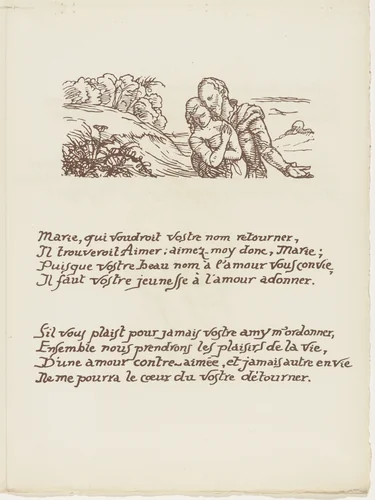 Marie, qui voudroit vostre nom retourner,
Il trouveroit Aimer: aimez-moy donc, Marie;
Puisque vostre beau nom à l'amour vous convie,
Il faut vostre jeunesse à l'amour adonner.
S'il vous plaist pour jamais vostre amy m'ordonner,
Ensemble nous prendrons les plaisirs de la vie,
D'une amour contre-aimée, et jamais autre envie
Ne me pourra le cœur du vostre détourner.